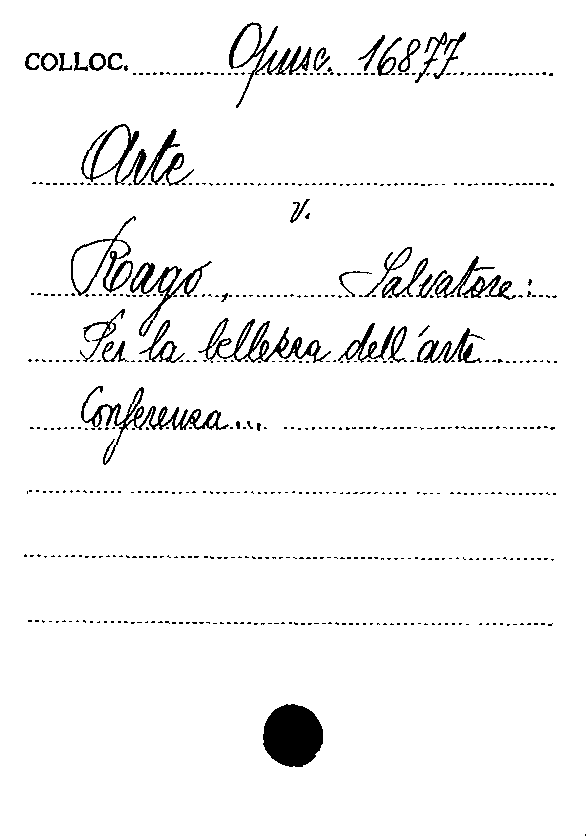 COLLOC. Opusc. 16877
Arte
v.
Rago, Salvatore:
Per la bellezza dell'arte.
Conferenza...